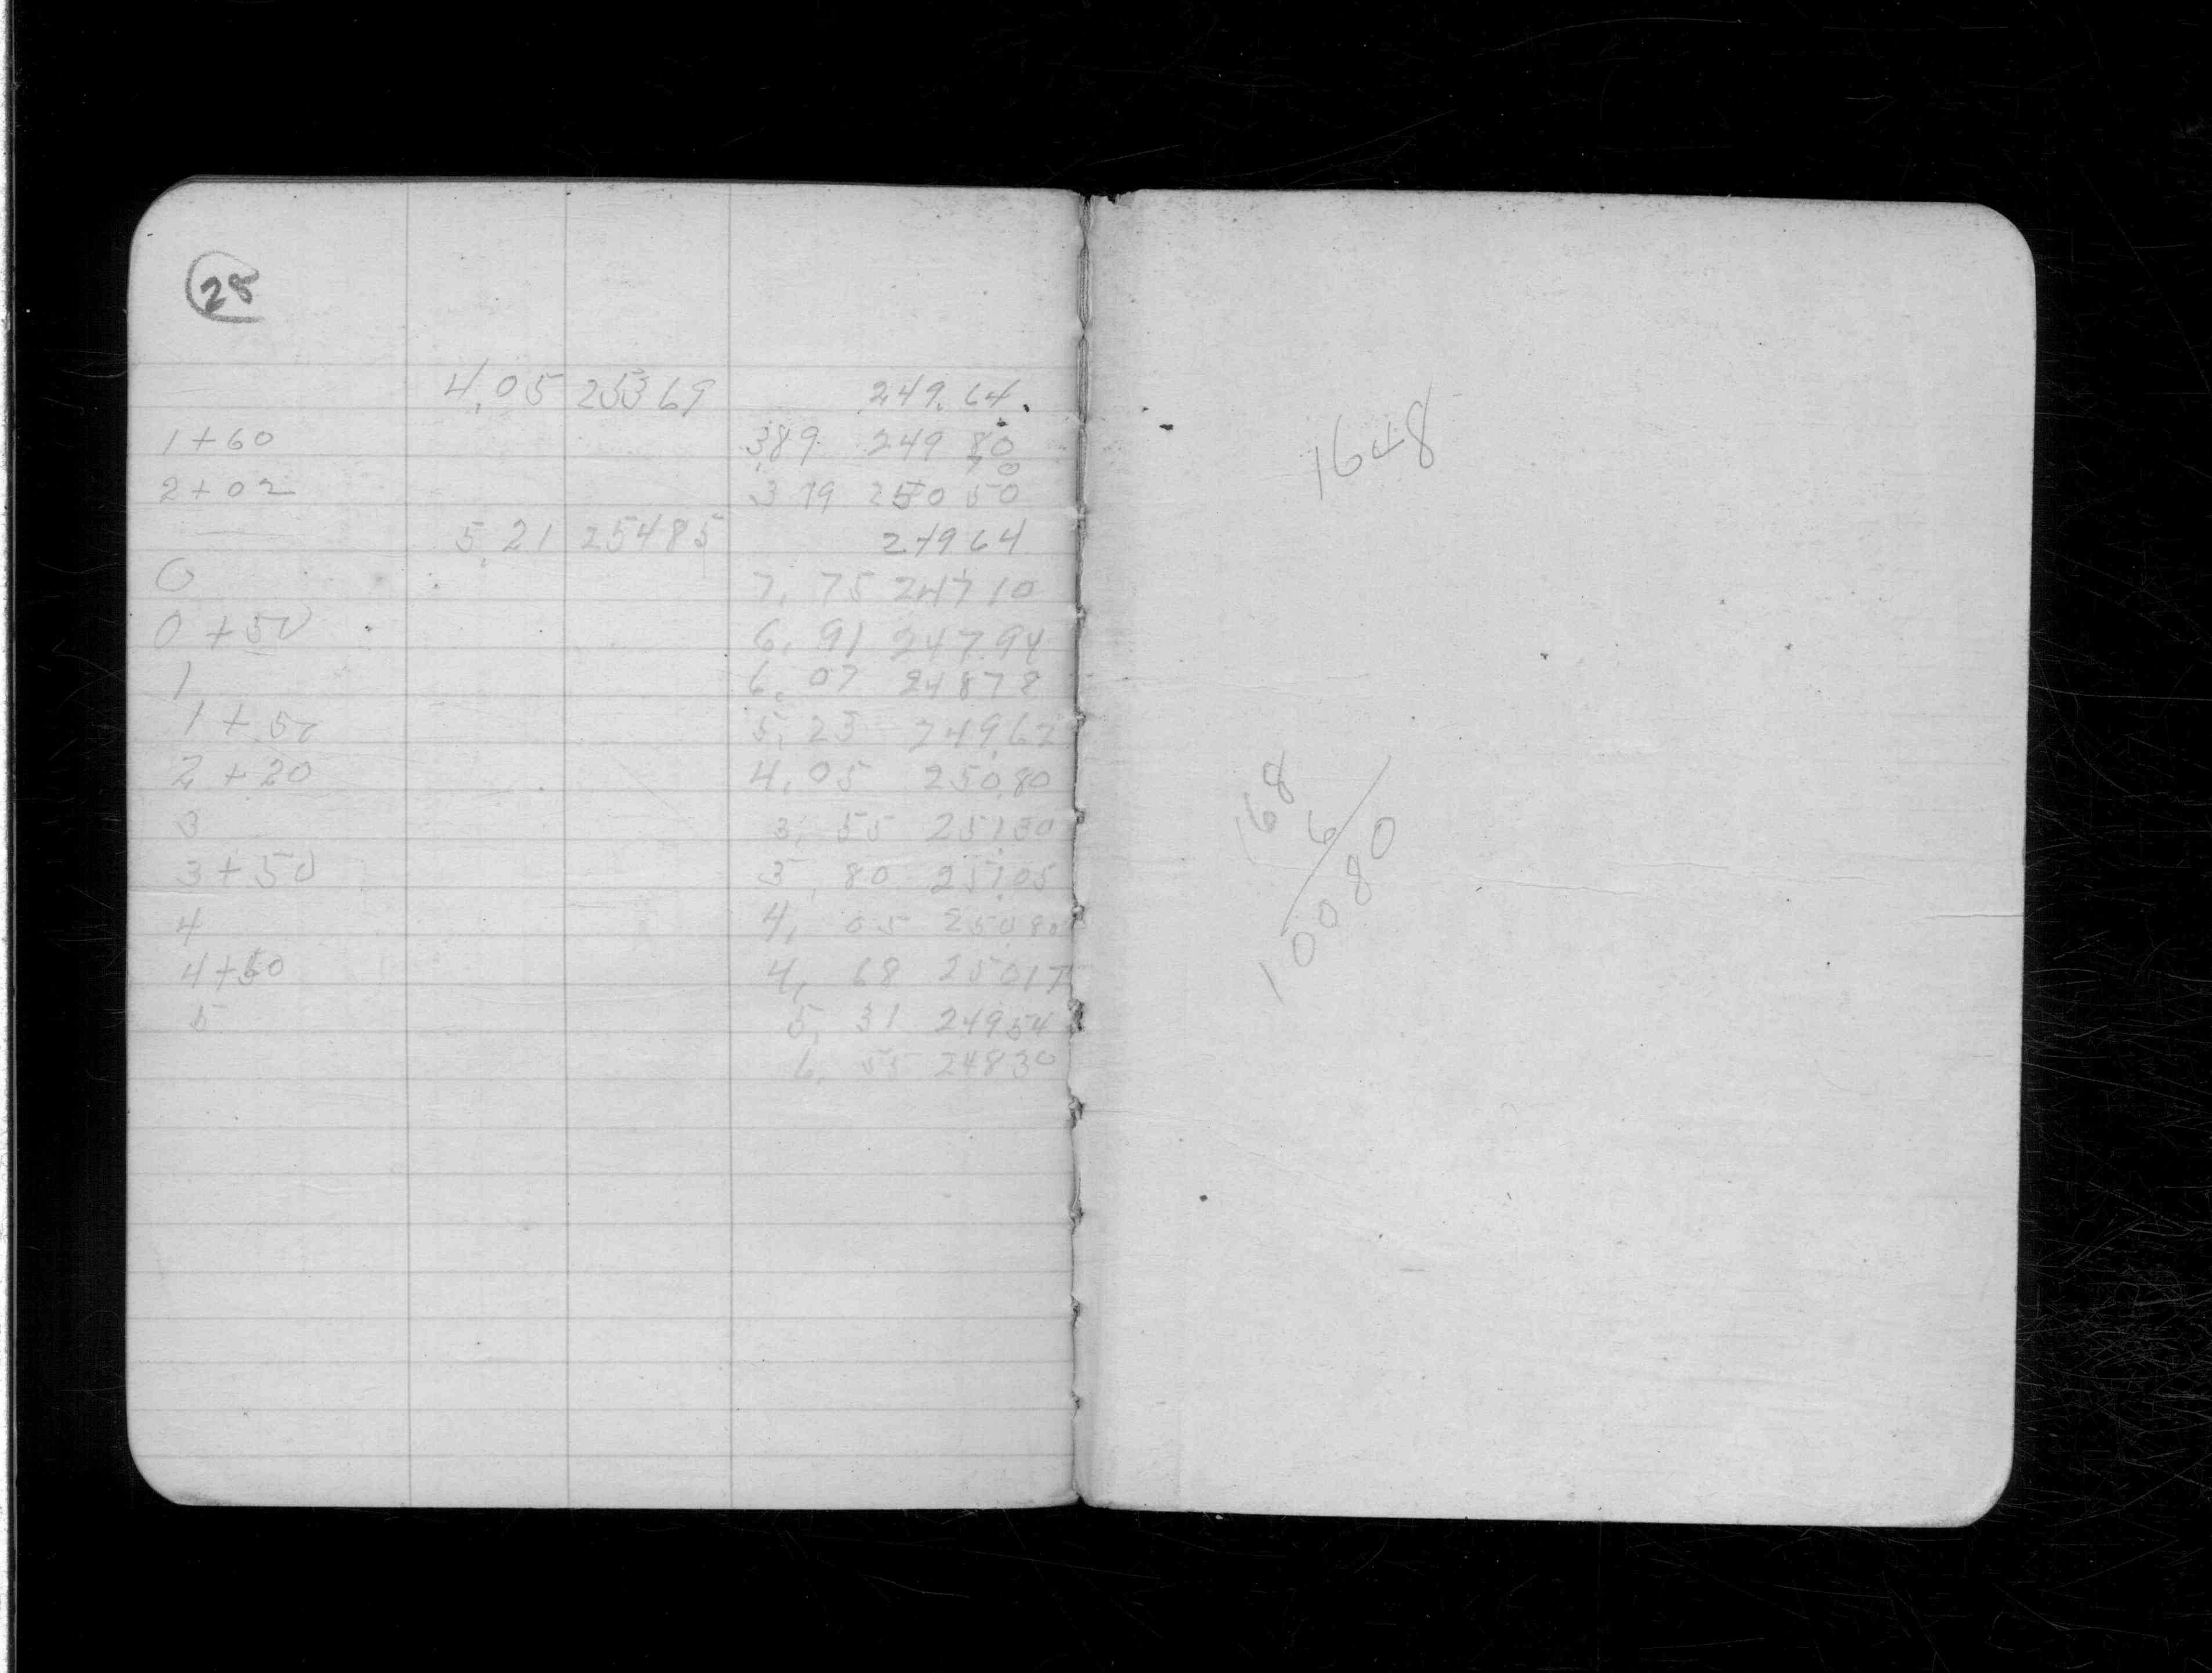 25
4.05 253 69 249.64
1+60 3.89 249 80
70
2+02 3 19 250 50
5.21 254 85 249 64
0 7.75 247 10
0+50 6.91 247.94
1 6.07 248 78
1+50 5.23 249.62
2+20 4.05 250.80
3 3.55 251.30
3+50 3.80 251.05
4 4.05 250.80
4+50 4.68 250 17
5 5.31 249 54
6.55 248 30
1648
168
6
10080